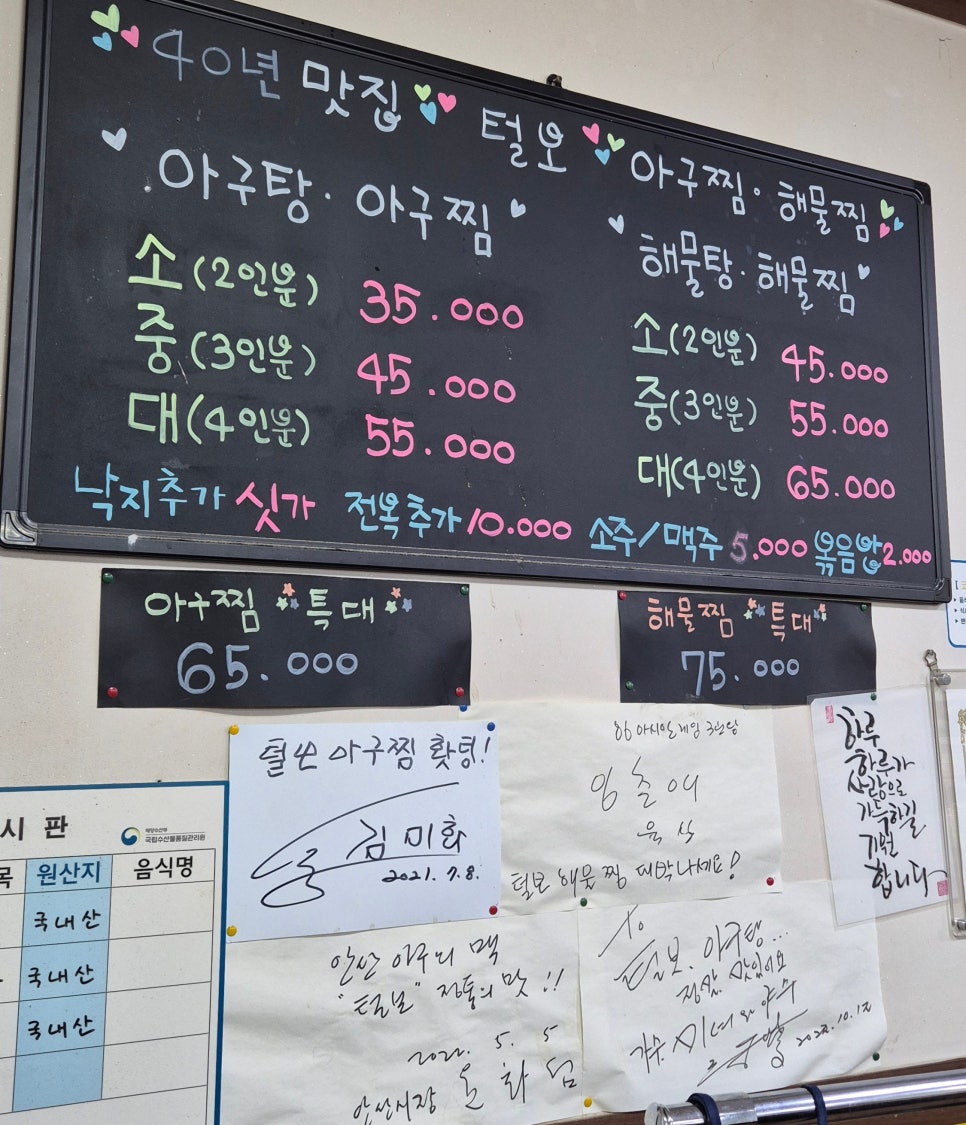 40년 맛집 털보 아구찜·해물찜
아구탕·아구찜
소(2인분) 35.000
중(3인분) 45.000
대(4인분) 55.000
해물탕·해물찜
소(2인분) 45.000
중(3인분) 55.000
대(4인분) 65.000
낙지추가 싯가 전복추가 10.000 소주/맥주 5.000 볶음밥 2.000
아구찜 특대
65.000
해물찜 특대
75.000
털보 아구찜 홧팅!
김미화
2021. 7. 8.
86 아시안게임 3관왕
임춘애
털보 해물찜 대박나세요!
하루
하루가
사랑으로
가득하길
기원
합니다
시판
해양수산부
국립수산물품질관리원
목 원산지 음식명
국내산
국내산
국내산
안산 아구의 맥
"털보" 전통의 맛!!
2022. 5. 5
안산시장
To
털보 아구찜...
정말 맛있어요
가수 미녀와 야수